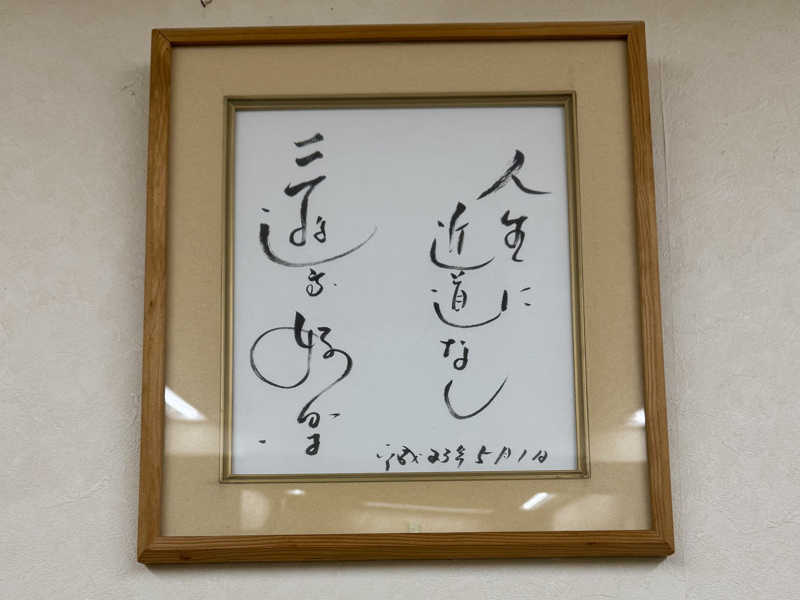 人生に
近道なし
平成23年5月1日
三遊亭好楽